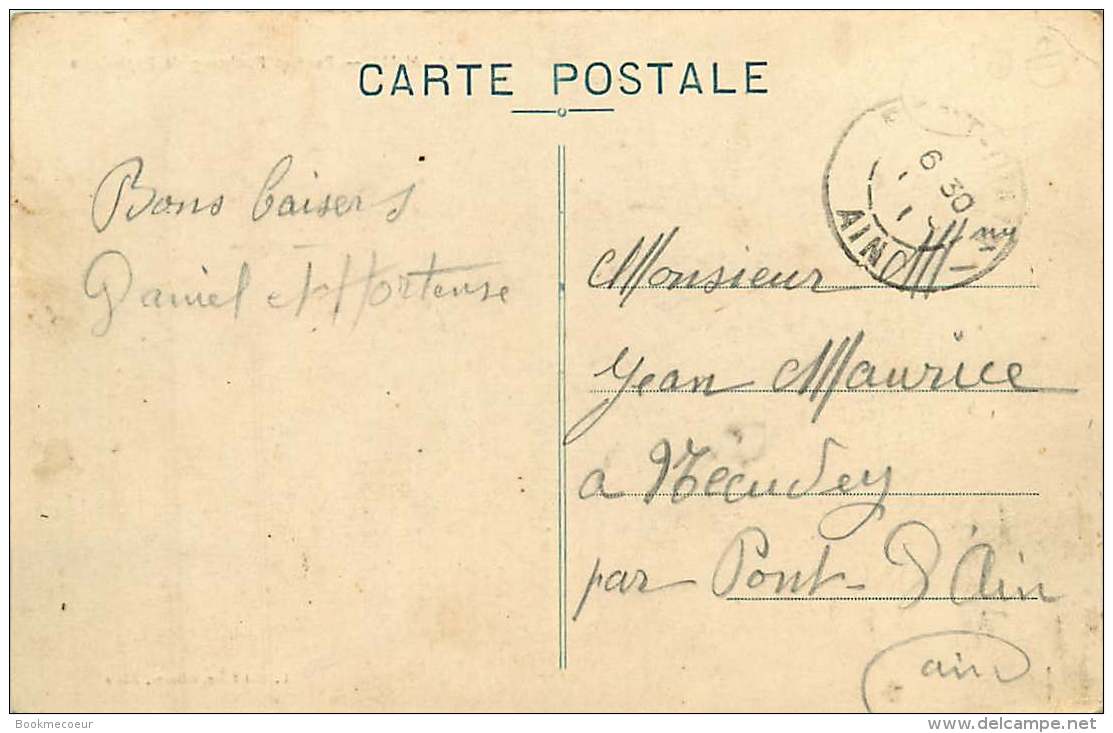 CARTE POSTALE
Bons baisers
Daniel et Hortense
6 30
AIN
Monsieur
Jean Maurice
a
par Pont-D'Ain
ain
Bookmecoeur
delcampe.net